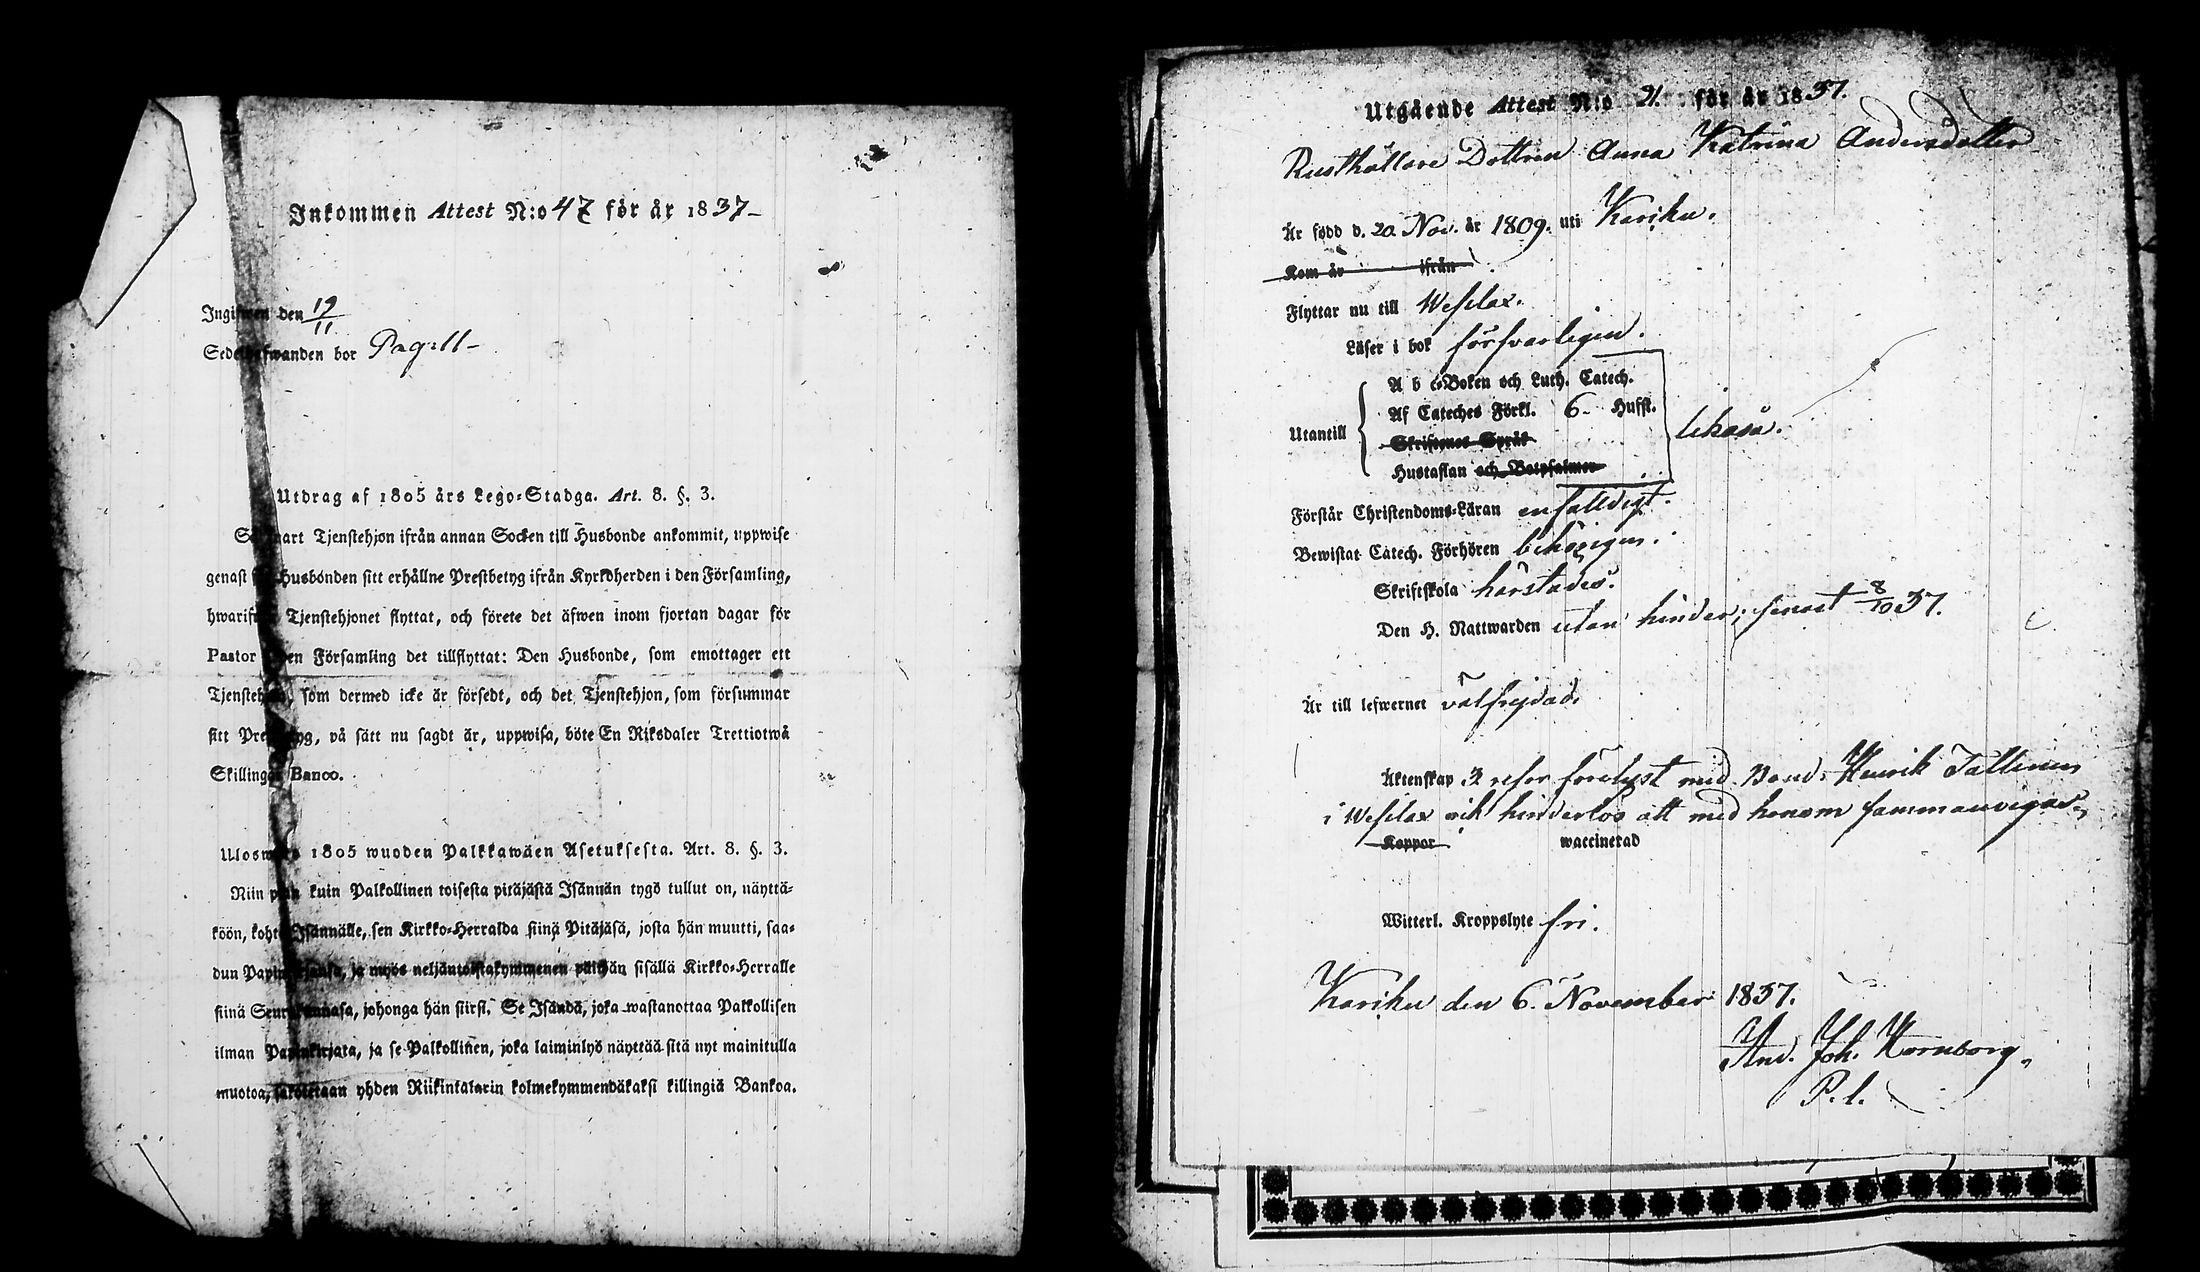 Inkommen Attest N:o 47 för år 1837-
Ingifwen den 19/11
Sedelhafwanden bor Pag. 11-
Utdrag af 1805 års Lego-Stadga. Art. 8. §. 3.
Så snart Tjenstehjon ifrån annan Socken till Husbonde ankommit, uppwise
genast för husbonden sitt erhållne Prestbetyg ifrån Kyrkoherden i den Församling,
hwarifrån Tjenstehjonet flyttat, och förete det äfwen inom fjortan dagar för
Pastor i den Församling det tillflyttat: Den Husbonde, som emottager ett
Tjenstehjon, som dermed icke är försedt, och det Tjenstehjon, som försummar
sitt Prestbetyg, på sätt nu sagdt är, uppwisa, böte En Riksdaler Trettiotwå
Skillingar Banco.
Ulosweto 1805 wuoden Palkkawäen Asetuksesta. Art. 8. §. 3.
Niin pian kuin Palkollinen toisesta pitäjästä Isännän tygö tullut on, näyttä-
köön, kohta Isännälle, sen Kirkko-Herralda siinä Pitäjäsä, josta hän muutti, saa-
dun Papinkirjansa, ja myös neljäntoistakymmenen päiwän sisällä Kirkko-Herralle
siinä Seurakunnasa, johonga hän siirsi. Se Isändä, joka wastanottaa Palkollisen
ilman Papinkirjata, ja se Palkollinen, joka laiminlyö näyttää sitä nyt mainitulla
muotoa, sakotetaan yhden Riikintalarin kolmekymmendäkaksi killingiä Bankoa.
Utgående Attest N:o 21. för år 1837.
Rusthållare Dottren Anna Katrina Andersdotter
Är född d. 20. Nov. år 1809. uti Karjku.
Kom år ifrån
Flyttar nu till Wesilax.
Läser i bok försvarligen.
A b c-Boken och Luth. Catech.
Af Cateches Förkl. 6. Hufst.
Utantill likaså.
Skriftenes Språk
Hustaflan och Botpsalmer
Förstår Christendoms-Läran enfalldigt.
Bewistat Catech. Förhören behörigen.
Skriftskola härstädes.
Den H. Nattwarden utan hinder; senast 8/10 37.
Är till lefwernet välfrejdad.
Äktenskap 3 resor förelyst med Bond. Henrik Tallinen
i Wesilax och hinderlös att med honom sammanvigas.
Koppor waccinerad
Witterl. Kroppslyte fri.
Karjku den 6. November 1837.
And. Joh. Kornborg,
P. l.